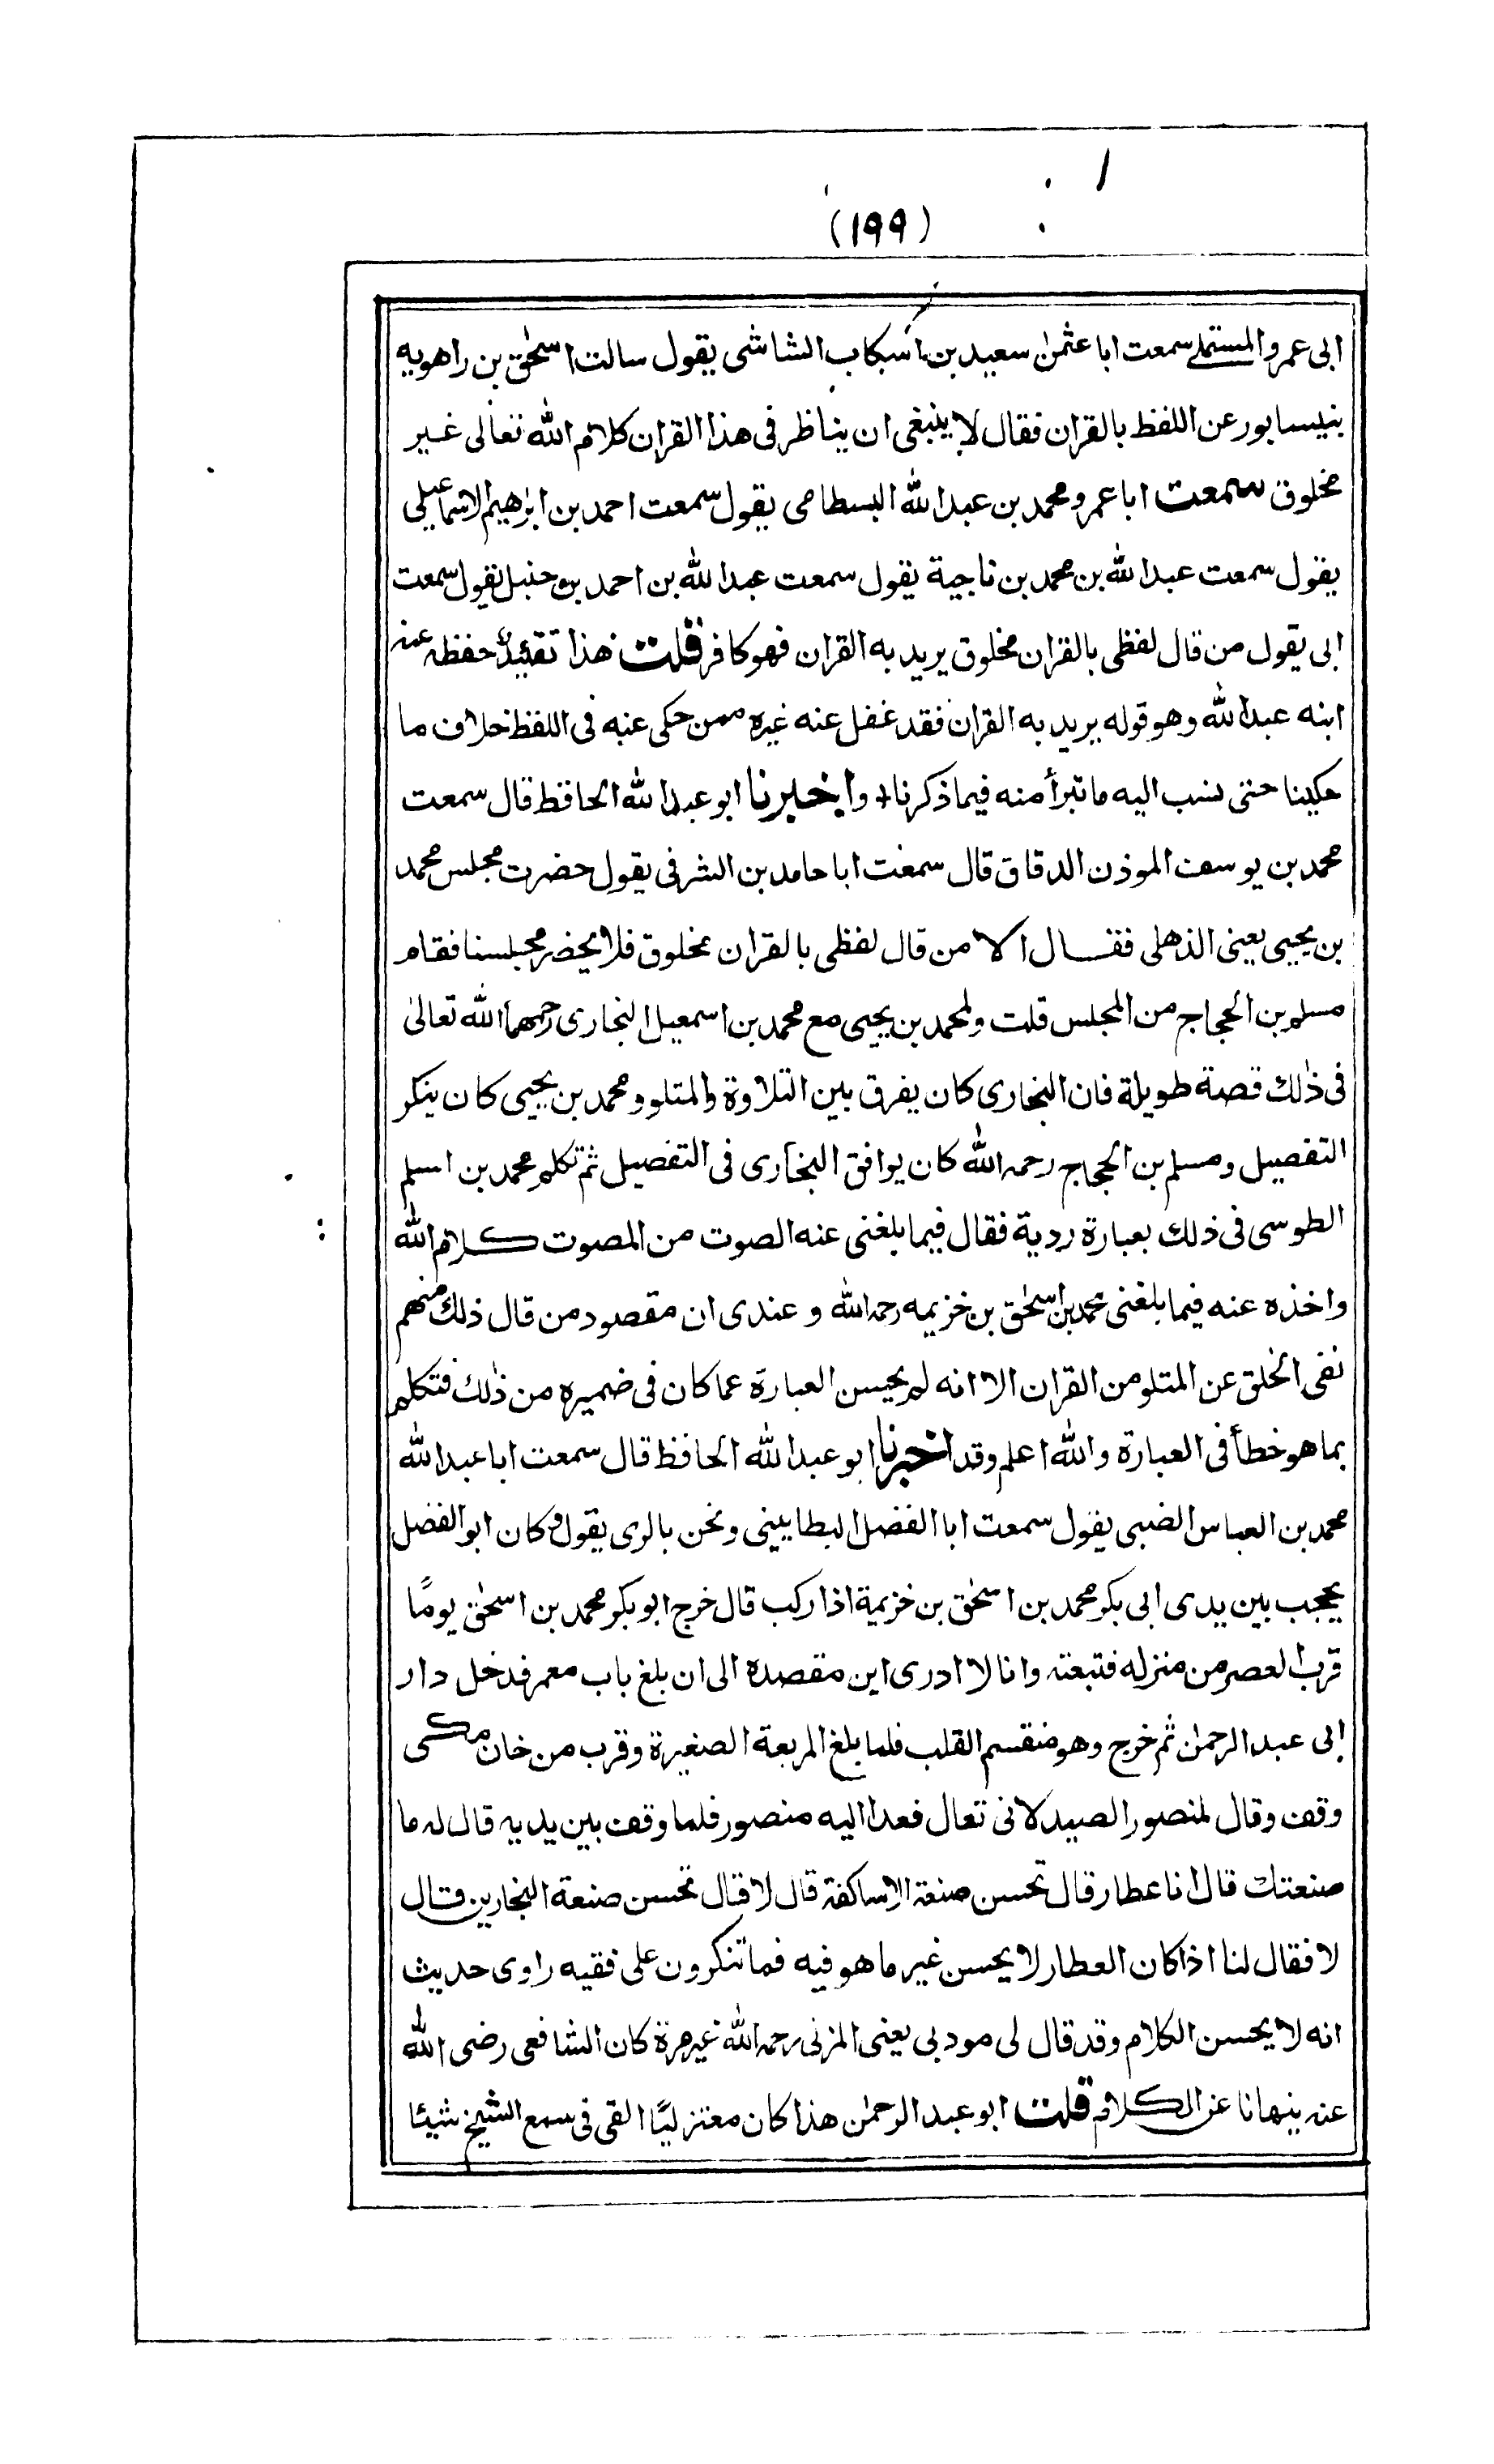 (١٩٩)
ابى عمرو المستملے سمعت ابا عثمٰن سعيد بن اسكاب الشاشى يقول سالت اسحٰق بن راهويه
بنيسابور عن اللفظ بالقران فقال لا ينبغى ان يناظر فى هذا القران كلام الله تعالى غير
مخلوق سمعت ابا عمرو محمد بن عبد الله البسطامى يقول سمعت احمد بن ابرٰهيم الاسماعيلى
يقول سمعت عبد الله بن محمد بن ناجية يقول سمعت عبد الله بن احمد بن حنبل يقول سمعت
ابى يقول من قال لفظى بالقران مخلوق يريد به القران فهو كافر قلت هذا تقييد حفظه عنه
ابنه عبد الله وهو قوله يريد به القران فقد غفل عنه غيره ممن حكى عنه فى اللفظ خلاف ما
حكينا حتى نسب اليه ما تبرأ منه فيما ذكرنا واخبرنا ابو عبد الله الحافظ قال سمعت
محمد بن يوسف الموذن الدقاق قال سمعت ابا حامد بن الشرقى يقول حضرت مجلس محمد
بن يحيى يعنى الذهلى فقال الا من قال لفظى بالقران مخلوق فلا يحضر مجلسنا فقام
مسلم بن الحجاج من المجلس قلت ولمحمد بن يحيى مع محمد بن اسمعيل البخارى رحمهما الله تعالىٰ
فى ذٰلك قصة طويلة فان البخارى كان يفرق بين التلاوة والمتلو ومحمد بن يحيى كان ينكر
التفصيل ومسلم بن الحجاج رحمه الله كان يوافق البخارى فى التفصيل ثم تكلم محمد بن اسلم
الطوسى فى ذلك بعبارة ردية فقال فيما بلغنى عنه الصوت من المصوت كلام الله
واخذه عنه فيما بلغنى محمد بن اسحٰق بن خزيمه رحمه الله و عندى ان مقصود من قال ذلك منهم
نفى الخلق عن المتلو من القران الا انه لم يحسن العبارة عما كان فى ضميره من ذٰلك فتكلم
بما هو خطأ فى العبارة والله اعلم وقد اخبرنا ابو عبد الله الحافظ قال سمعت ابا عبد الله
محمد بن العباس الضبى يقول سمعت ابا الفضل البطايينى ونحن بالرى يقول وكان ابو الفضل
يحجب بين يدى ابى بكر محمد بن اسحٰق بن خزيمة اذا ركب قال خرج ابو بكر محمد بن اسحٰق يومًا
قرب العصر من منزله فتبعته وانا لا ادرى اين مقصده الى ان بلغ باب معمر فدخل دار
ابى عبد الرحمٰن ثم خرج وهو منقسم القلب فلما بلغ المربعة الصغيرة وقرب من خان مكى
وقف وقال لمنصور الصيدلانى تعال فعدا اليه منصور فلما وقف بين يديه قال له ما
صنعتك قال انا عطار قال تحسن صنعة الاساكفة قال لا قال تحسن صنعة النجارين قال
لا فقال لنا اذا كان العطار لا يحسن غير ما هو فيه فما تنكرون على فقيه راوى حديث
انه لا يحسن الكلام وقد قال لى مودبى يعنى المزنى رحمه الله غير مرة كان الشافعى رضى الله
عنه ينهانا عن الكلام قلت ابو عبد الرحمٰن هذا كان معتزليًا القى فى سمع الشيخ شيئا